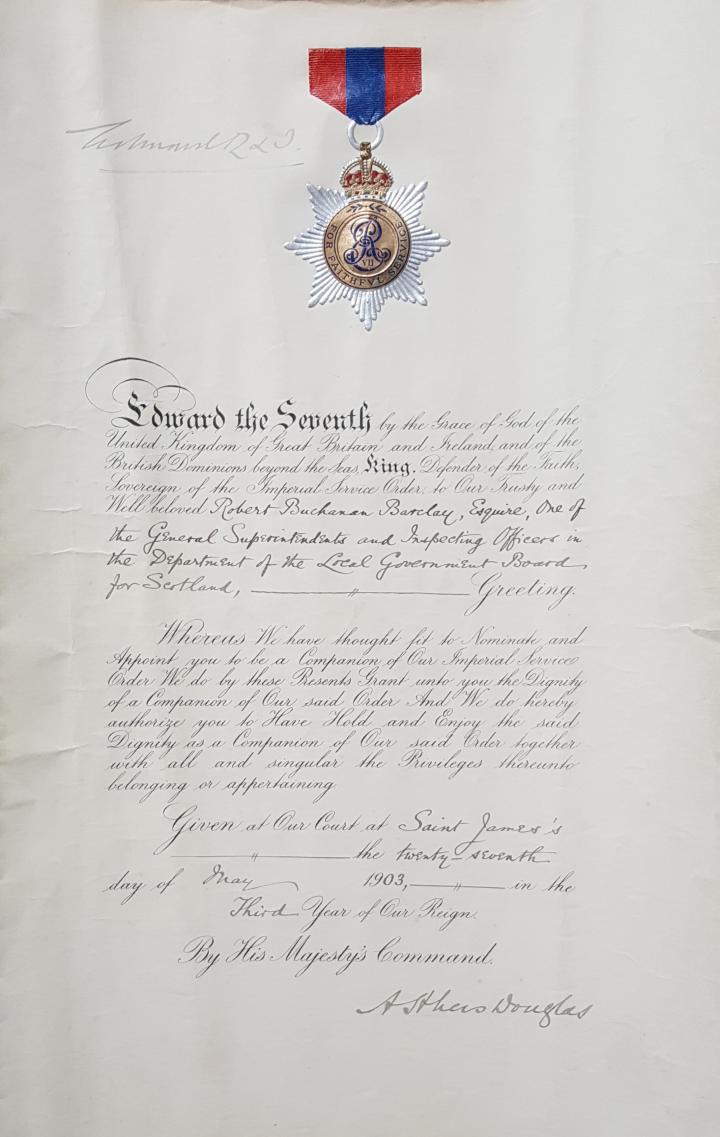 FOR FAITHFUL SERVICE
VII
Edward the Seventh by the Grace of God of the
United Kingdom of Great Britain and Ireland, and of the
British Dominions beyond the Seas, King, Defender of the Faith,
Sovereign of the Imperial Service Order, to Our Trusty and
Well beloved Robert Buchanan Barclay, Esquire, One of
the General Superintendents and Inspecting Officers in
the Department of the Local Government Board
for Scotland, Greeting.
Whereas We have thought fit to Nominate and
Appoint you to be a Companion of Our Imperial Service
Order We do by these Presents Grant unto you the Dignity
of a Companion of Our said Order And We do hereby
authorize you to Have Hold and Enjoy the said
Dignity as a Companion of Our said Order together
with all and singular the Privileges thereunto
belonging or appertaining
Given at Our Court at Saint James's
the twenty-seventh
day of May 1903, in the
Third Year of Our Reign.
By His Majesty's Command.
Douglas